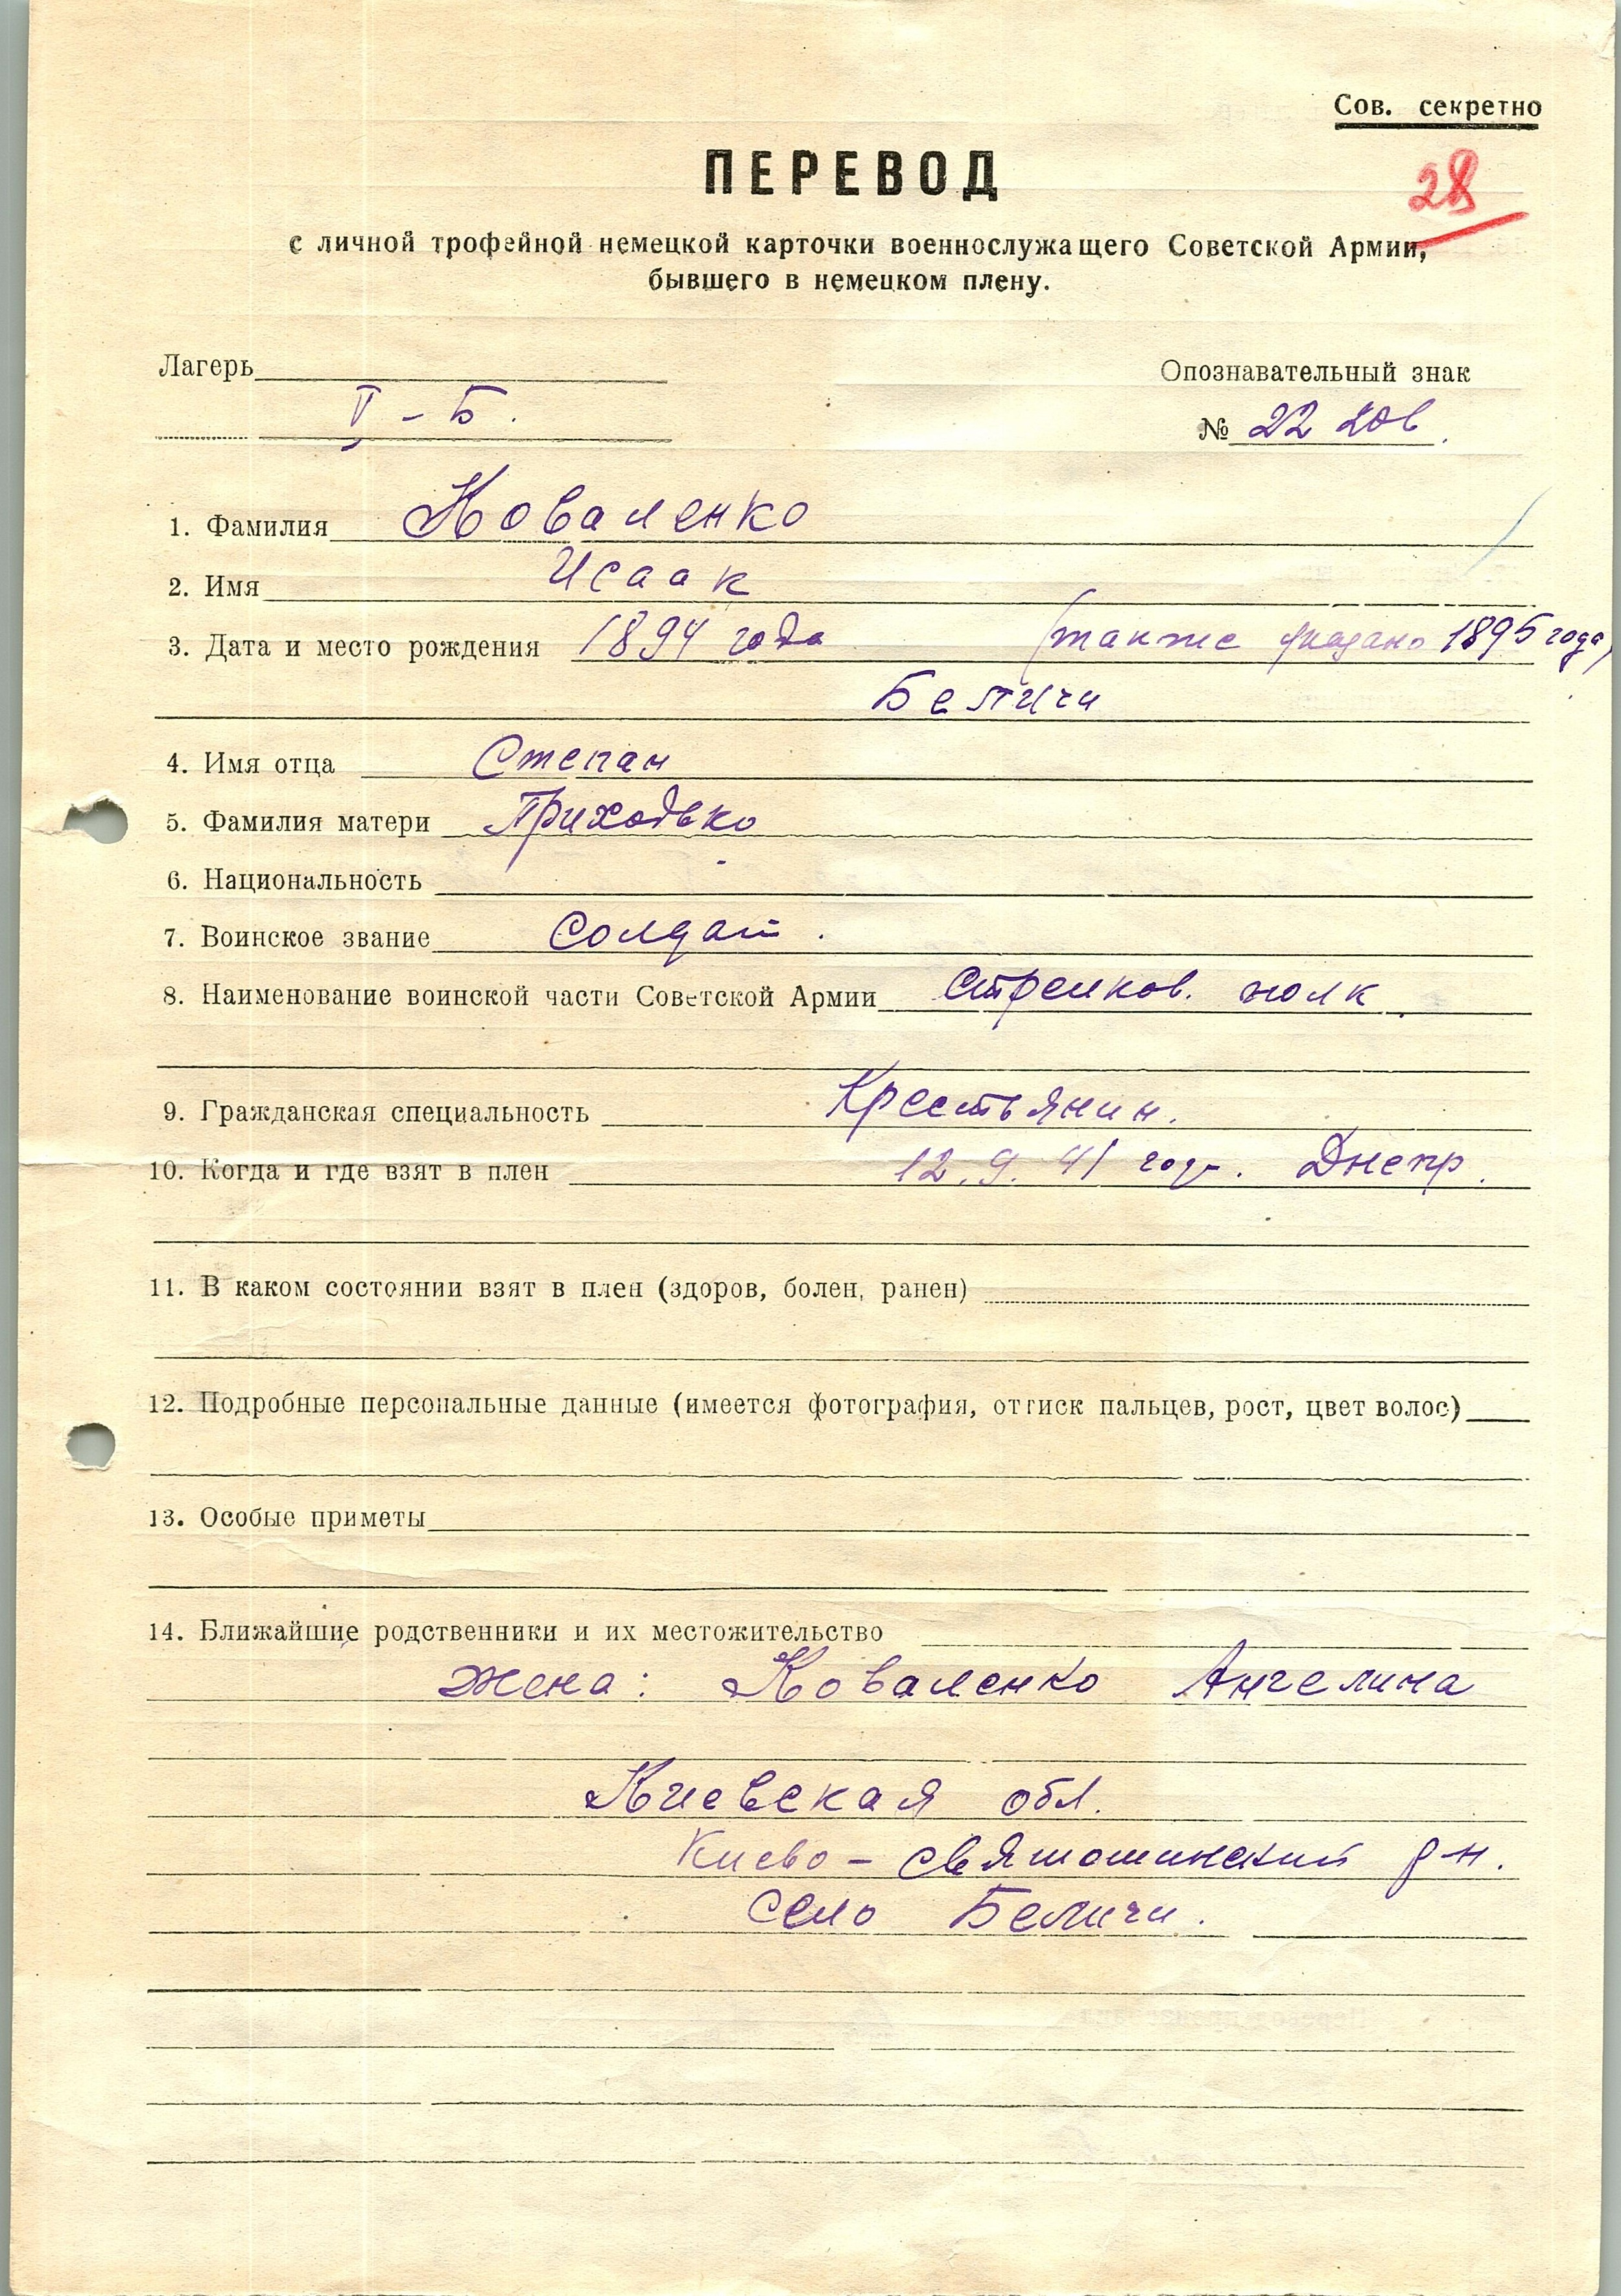 Сов. секретно
28
ПЕРЕВОД
с личной трофейной немецкой карточки военнослужащего Советской Армии,
бывшего в немецком плену.
Лагерь
V - Б.
Опознавательный знак
№ 22 206.
1. Фамилия Коваленко
2. Имя Исаак
3. Дата и место рождения 1894 года (также указано 1895 года)
Беличи
4. Имя отца Степан
5. Фамилия матери Приходько
6. Национальность
7. Воинское звание Солдат.
8. Наименование воинской части Советской Армии Стрелков. полк.
9. Гражданская специальность Крестьянин.
10. Когда и где взят в плен 12. 9. 41 года. Днепр.
11. В каком состоянии взят в плен (здоров, болен, ранен)
12. Подробные персональные данные (имеется фотография, оттиск пальцев, рост, цвет волос)
13. Особые приметы
14. Ближайшие родственники и их местожительство
Жена: Коваленко Ангелина
Киевская обл.
Киево - Святошинский р-н.
село Беличи.